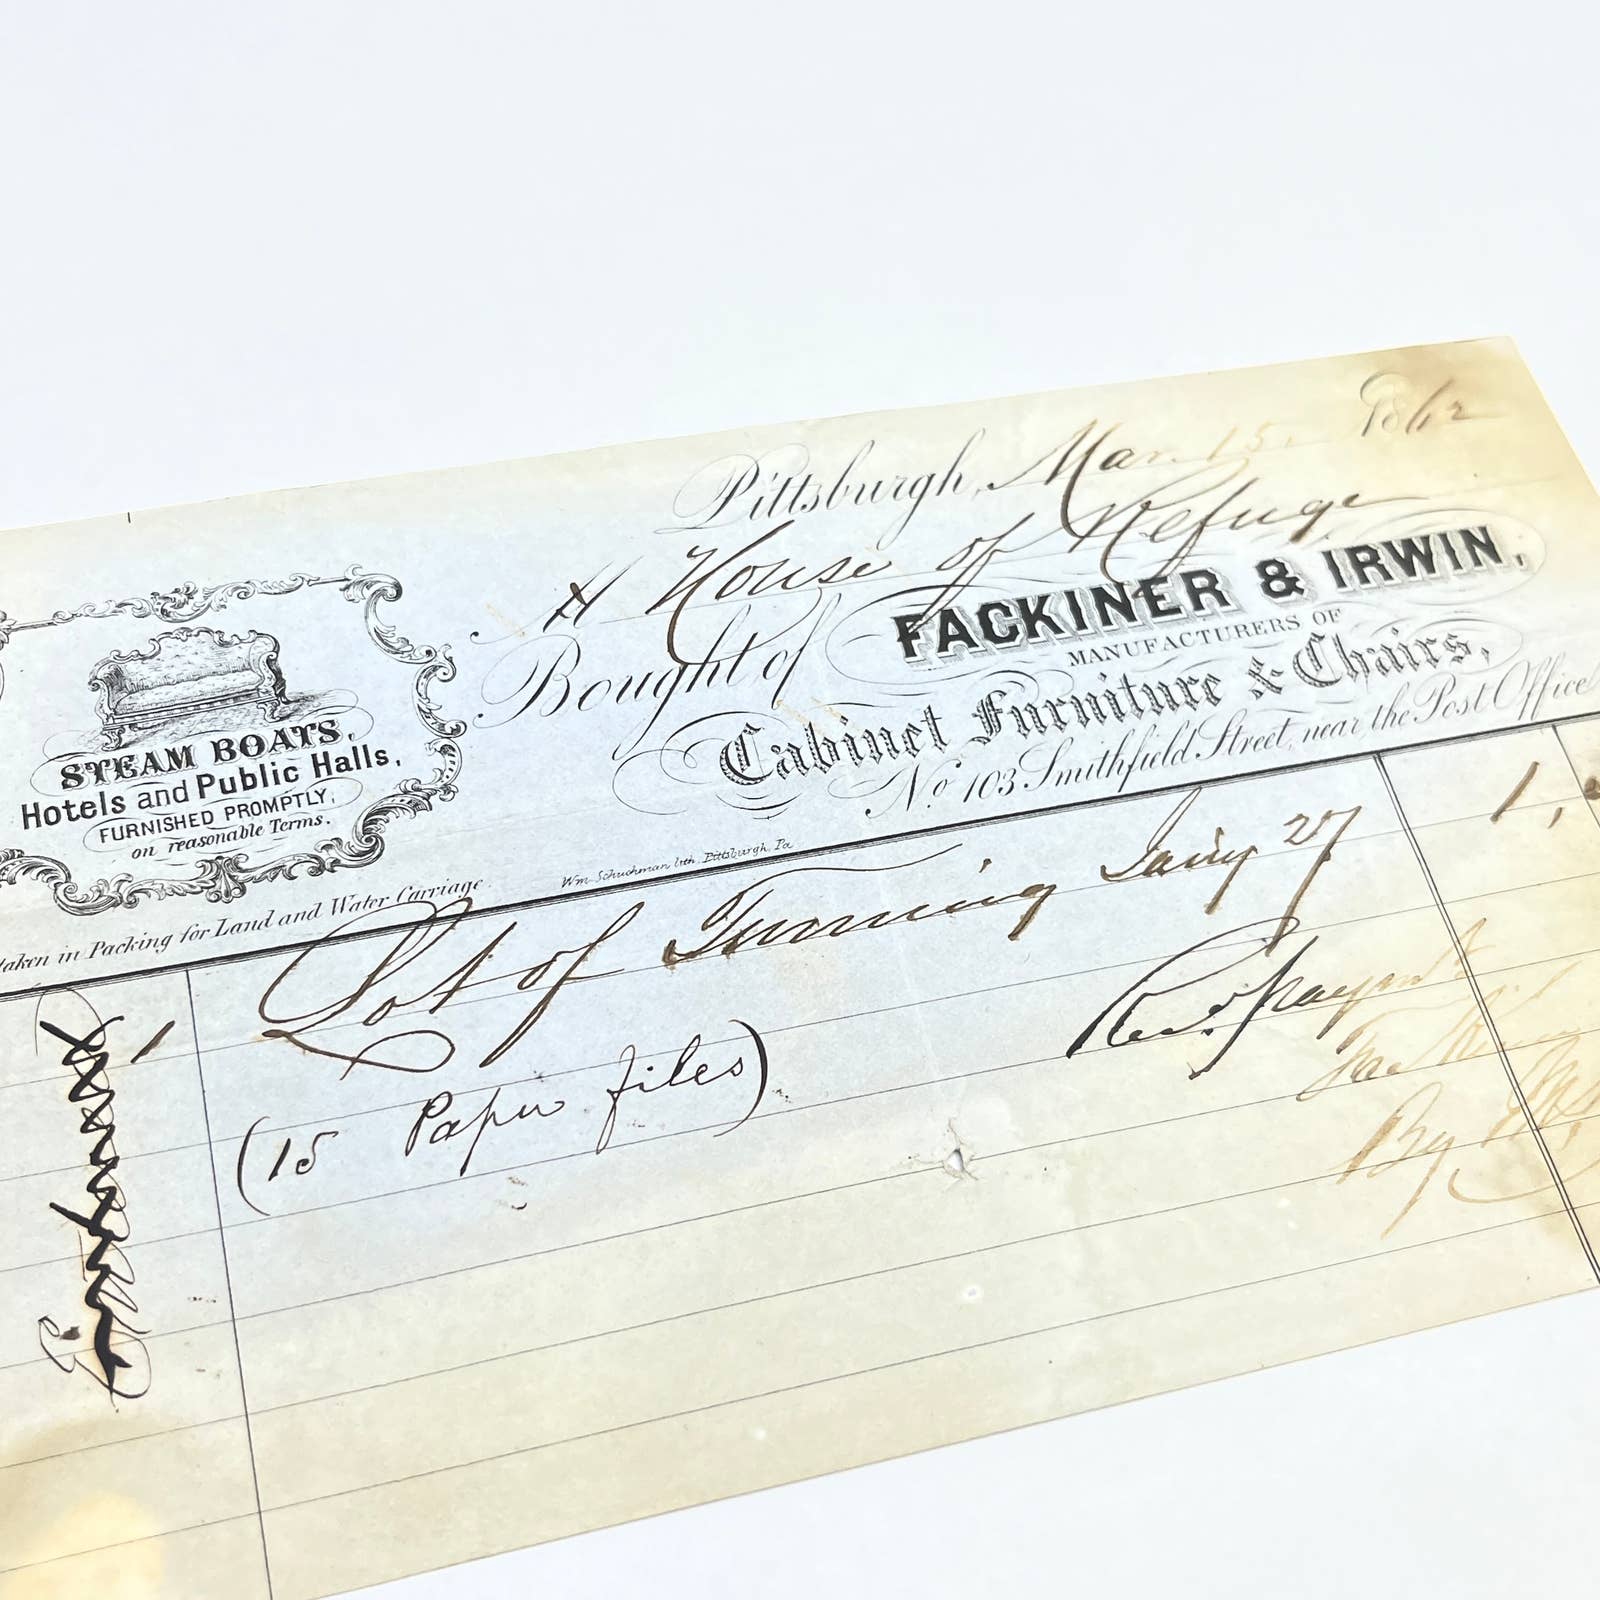 Pittsburgh, Mar. 15, 1862
House of Refuge
Bought of FACKINER & IRWIN,
MANUFACTURERS OF
Cabinet Furniture & Chairs,
No. 103 Smithfield Street, near the Post Office
STEAM BOATS,
Hotels and Public Halls,
FURNISHED PROMPTLY,
on reasonable Terms.
taken in Packing for Land and Water Carriage.
Wm. Schuchman lith. Pittsburgh, Pa
1 Lot of Turning 27 1,
(15 Paper files)
Rec. Paymt
By